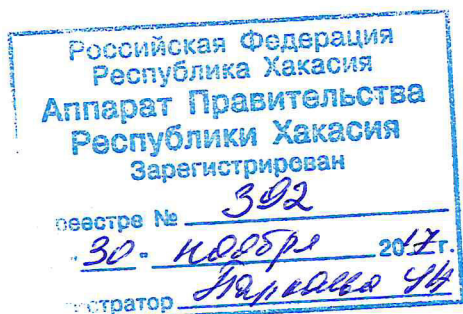 Российская Федерация
Республика Хакасия
Аппарат Правительства
Республики Хакасия
Зарегистрирован
реестре № 392
"30" ноября 2017 г.
стратор